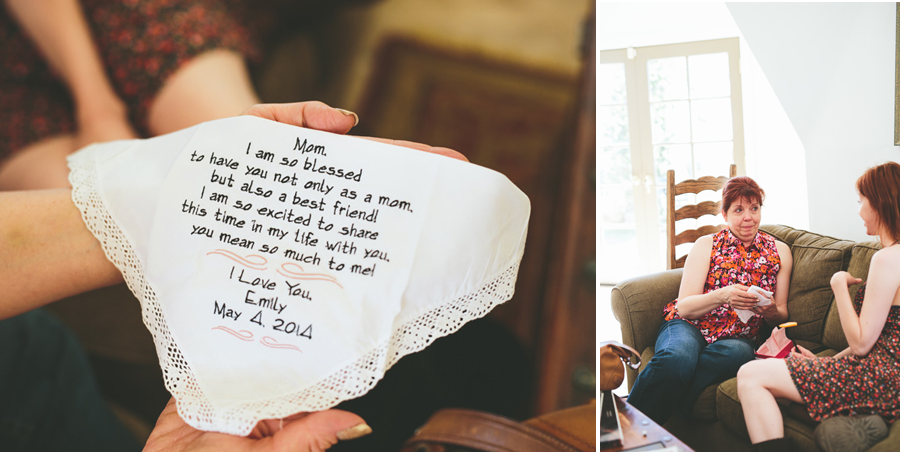 Mom,
I am so blessed
to have you not only as a mom,
but also a best friend!
I am so excited to share
this time in my life with you,
you mean so much to me!
I Love You,
Emily
May 4, 2014